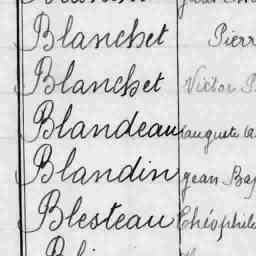 Blanchet Pierr
Blanchet Victor
Blandeau auguste
Blandin Jean Bap
Blesteau Théophile